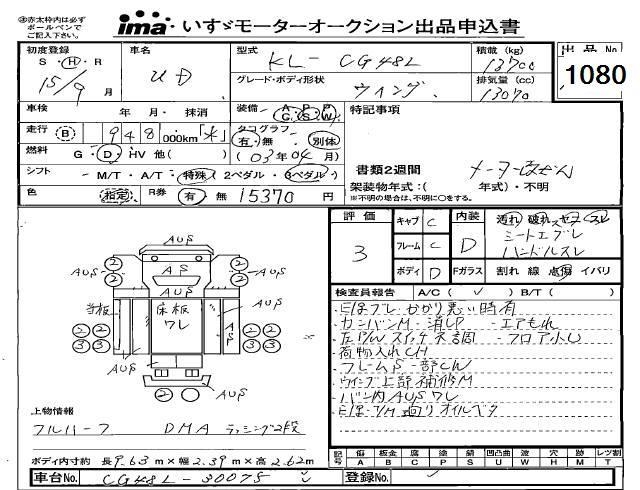 ※赤太枠内は必ず
ボールペンで
ご記入下さい。
ima いすゞモーターオークション出品申込書
初度登録 車名 型式 積載 (kg) 出品No.
S・H・R 15/9月 UD KL-CG48L 13700 1080
グレード・ボディ形状 排気量 (cc)
ウイング 13070
車検 年 月・抹消 装備 A C P S A W 特記事項
走行 B 948,000km 「木」 タコグラフ 有・無 別体
燃料 G・D・HV 他( ) (03年04月) 書類2週間 メーターほかん
シフト M/T・A/T 特殊(2ペダル・3ペダル) 架装物年式:( 年式)・不明
※不明の場合は、不明に○をする。
色 指定 R券 有・無 15370円
評価 3 キャブ C 内装 D 汚れ 破れ スレ
シートエグレ
フレーム C ハンドルスレ
ボディ D Fガラス 割れ 線 点傷 イバリ
AυS
② ② AυS AS AυS ② ②
床板 ワレ AυS
② ② A S A ② ②
③ ③ ③ ③
AυS
② ②
検査員報告 A/C( ✓ ) B/T( )
・カンバンM・消しP ・エアもれ
・左P/W スイッチ不調 ・フロア小U
・荷物入れCH
・フレームS 一部CW
・ウイング上部補修M
・バン内AυSワレ
上物情報
フルハーフ DMA ラッシング2段
ボディ内寸約 長9.63m×幅2.39m×高2.62m
記号 傷 A 板金 B 腐 C 塗 P 錆 S 凹凸曲 U 波 W 穴 H 交 M レツ割 T
車台No. CG48L-30078 登録No.